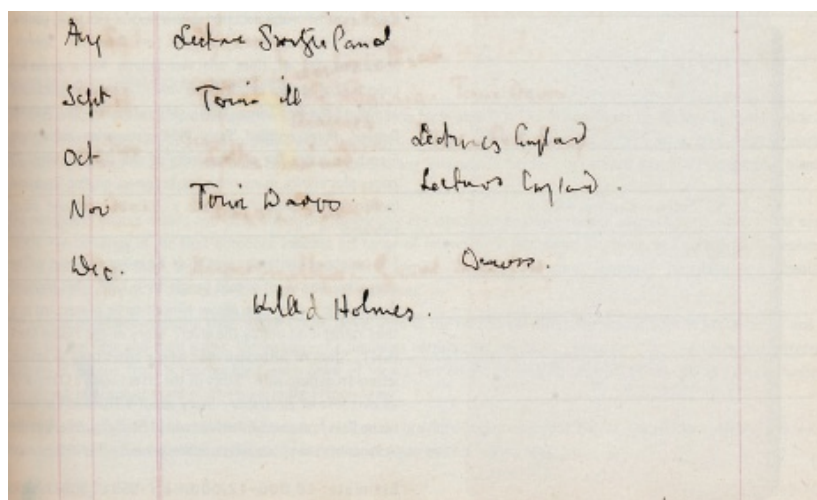 Aug Lecture Switzerland
Sept Touie ill
Oct Lectures England
Nov Touie Davos. Lectures England.
Dec. Davos.
Killed Holmes.